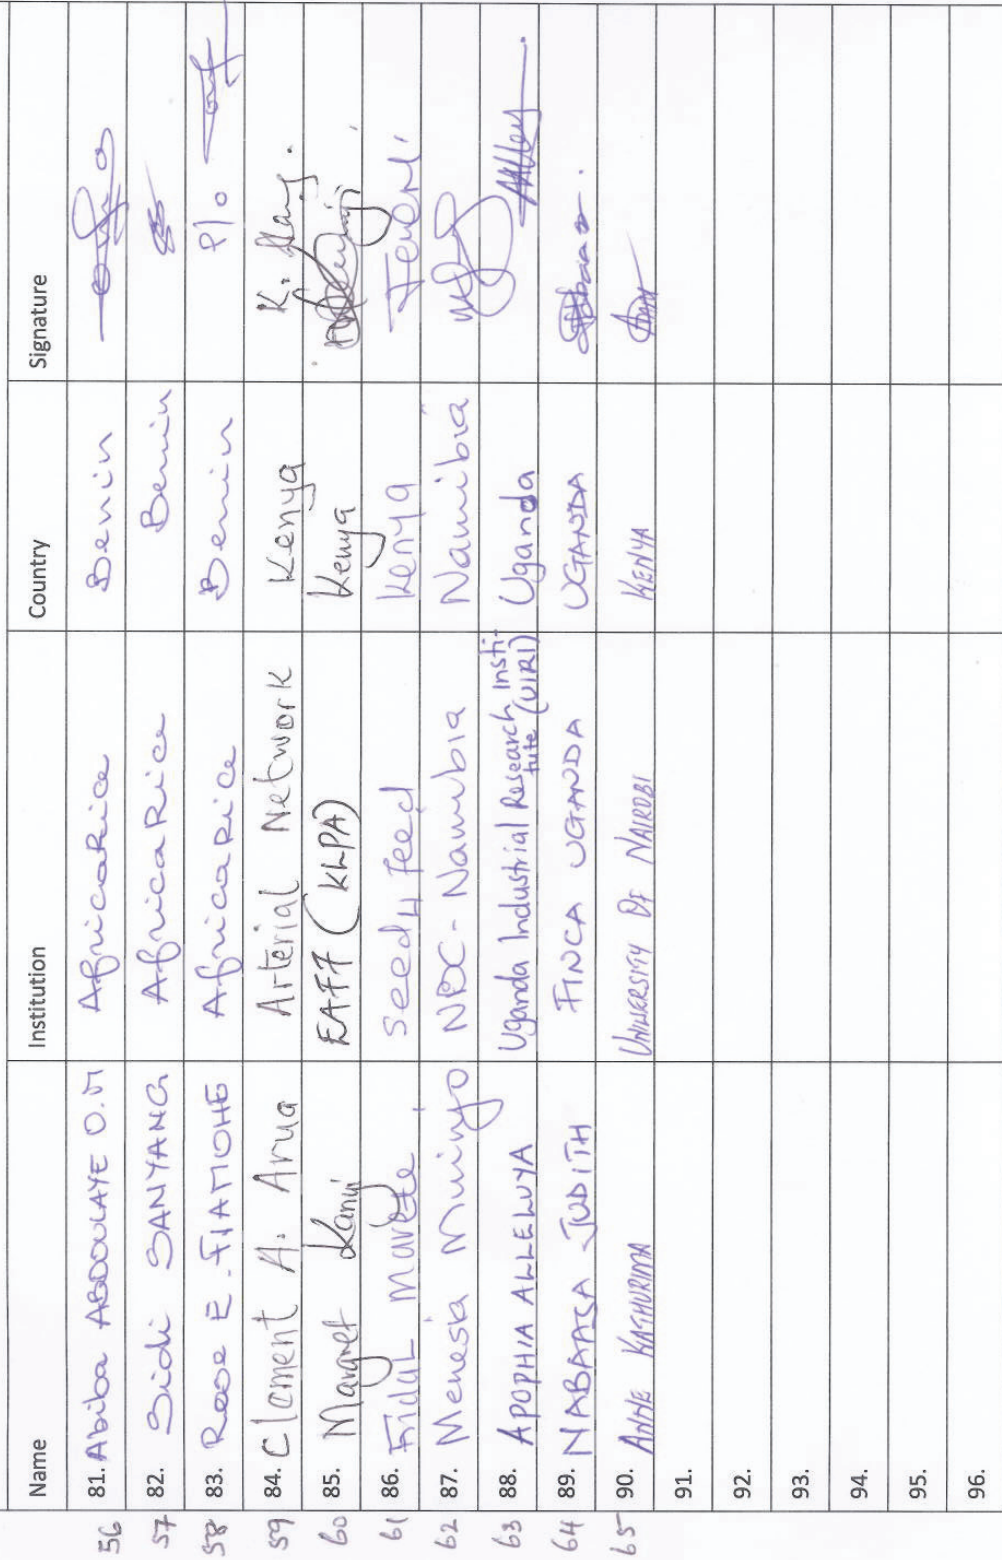 Name Institution Country Signature
56 81. Abiba ABDOULAYE O.M AfricaRice Benin
57 82. Sidi SANYANG AfricaRice Benin
58 83. Rose E. FIAMOHE AfricaRice Benin P/o
59 84. Clement A. Arua Arterial Network Kenya K.
60 85. Margret Kanyi EAFF (KLPA) Kenya
61 86. Fridah Marete Seed4Feed Kenya
62 87. Menesia Muinyo NDC-Namibia Namibia
63 88. APOPHIA ALLELUYA Uganda Industrial Research Insti-
tute (UIRI) Uganda
64 89. NABAASA JUDITH FINCA UGANDA UGANDA
65 90. ANNE KATHURIMA UNIVERSITY OF NAIROBI KENYA
91.
92.
93.
94.
95.
96.